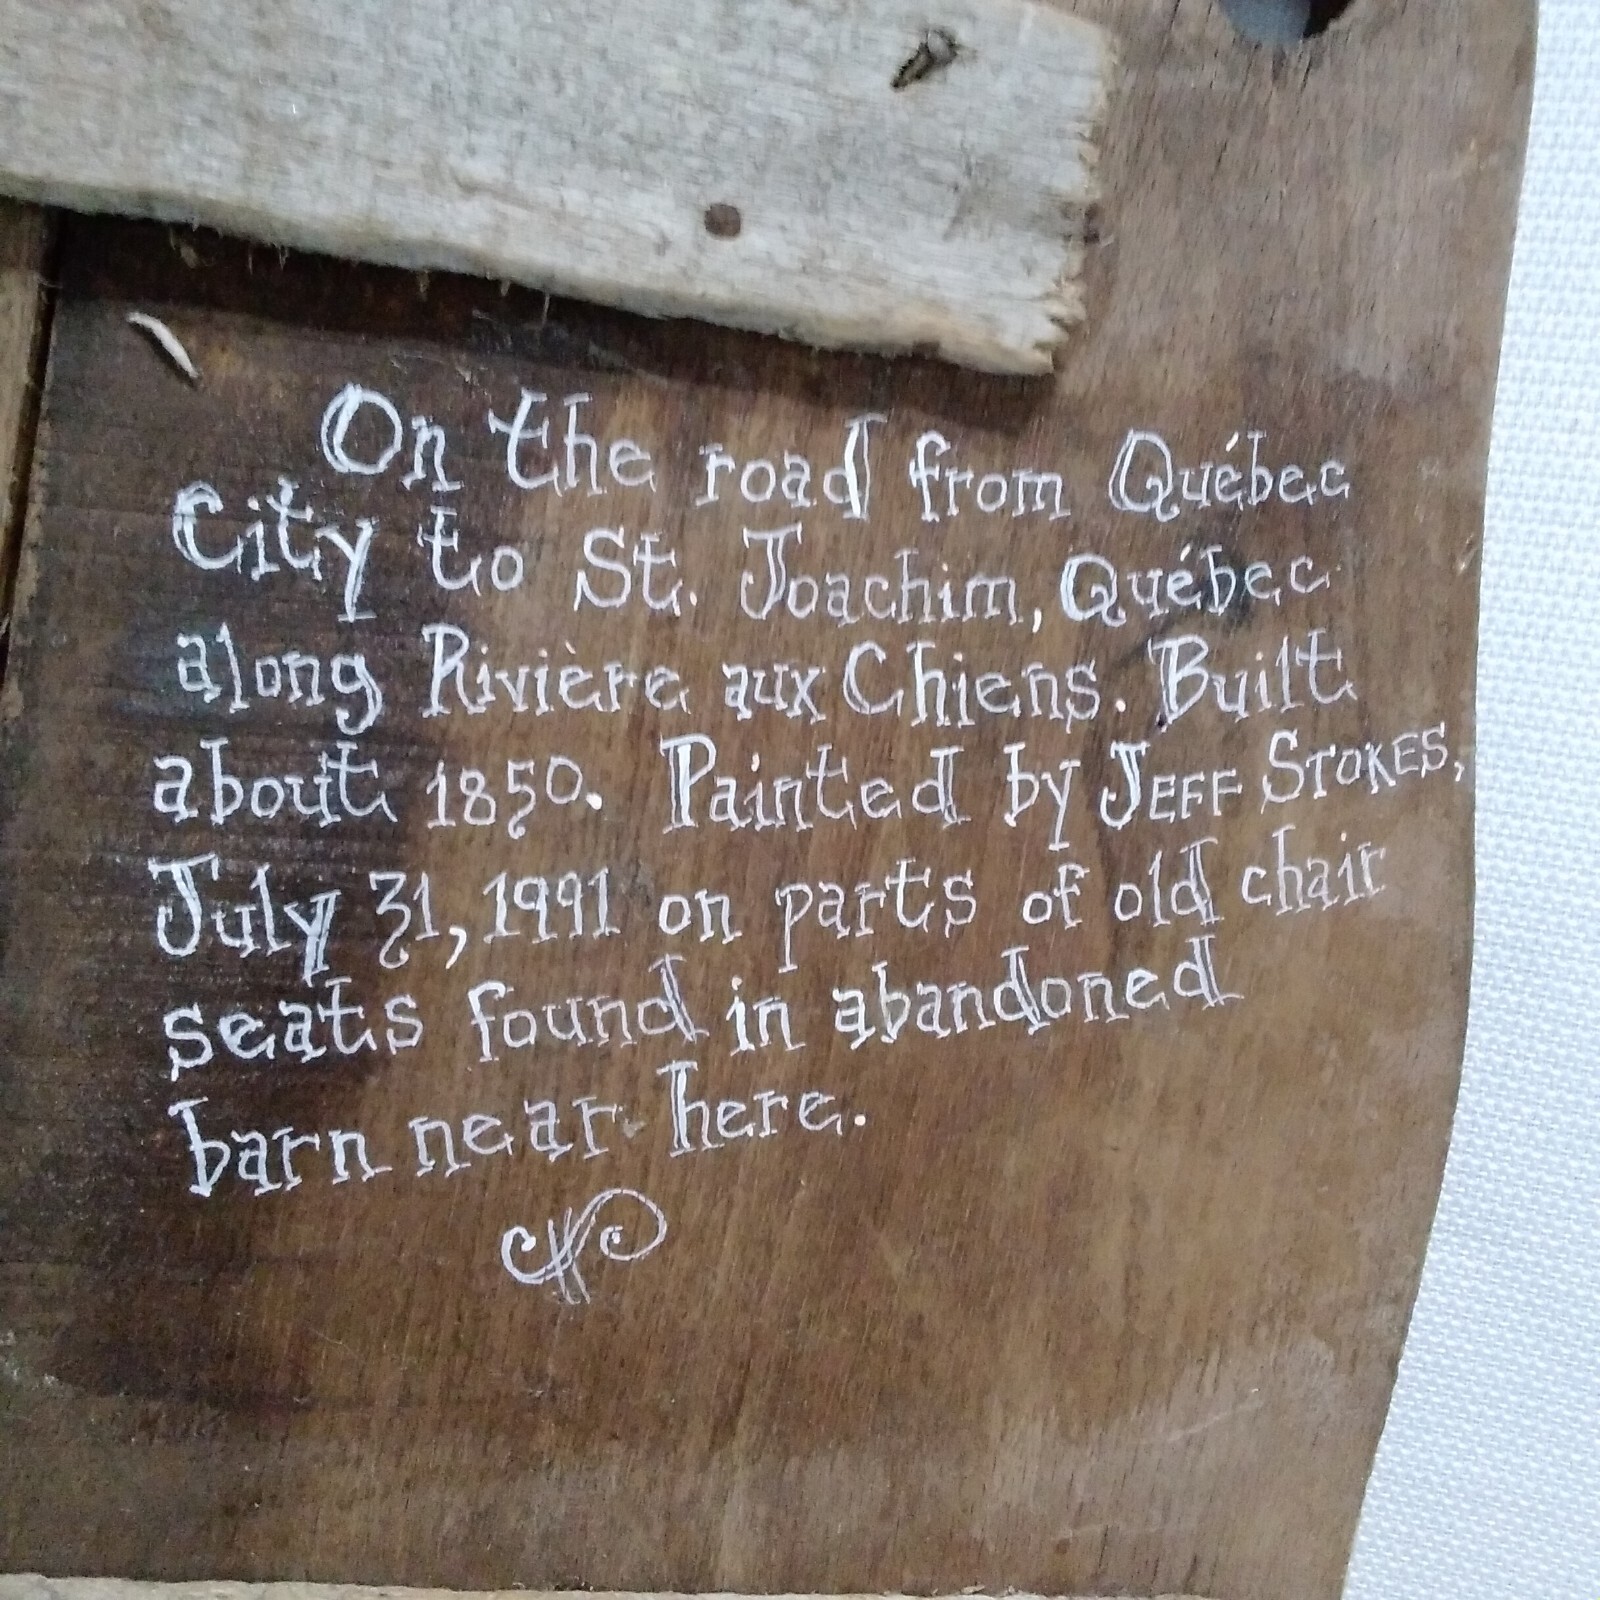 On the road from Québec
City to St. Joachim, Québec
along Rivière aux Chiens. Built
about 1850. Painted by JEFF STOKES,
July 31, 1991 on parts of old chair
seats found in abandoned
barn near here.